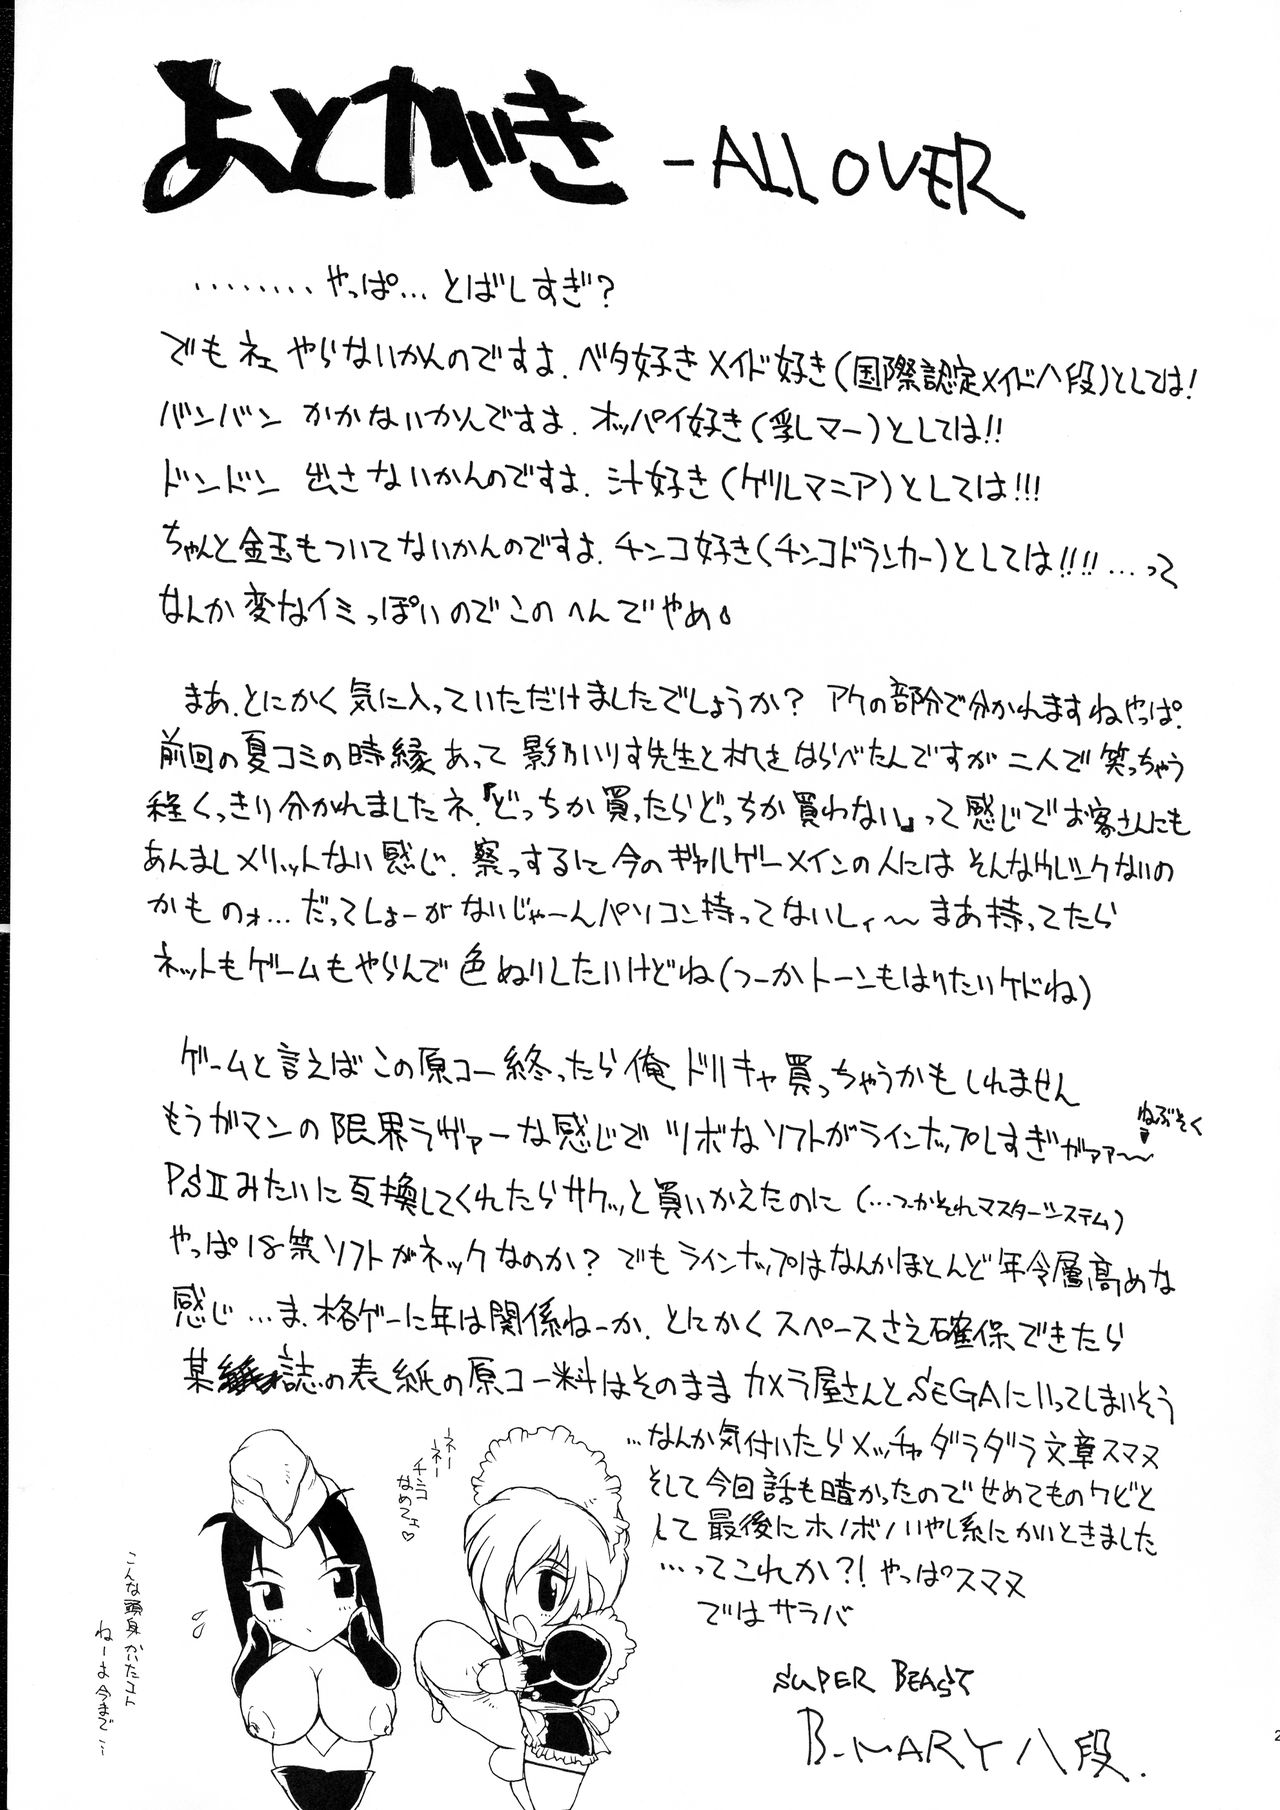 あとがき -ALL OVER
‥‥‥‥やっぱ…とばしすぎ?
でもネェ やらないかんのですよ.ベタ好きメイド好き(国際認定メイド八段)としては!
バンバン かかないかんですよ.オッパイ好き(乳しマー)としては!!
ドンドン 出さないかんのですよ.汁好き(ゲルマニア)としては!!!
ちゃんと金玉もついてないかんのですよ.チンコ好き(チンコドランカー)としては!!!!…って
なんか変なイミっぽいのでこのへんでやめ。
まあ.とにかく気に入っていただけましたでしょうか? アケの部分で分かれますねやっぱ.
前回の夏コミの時縁あって影乃いりす先生と机をならべたんですが二人で笑っちゃう
程くっきり分かれましたネ.『どっちか買ったらどっちか買わない』って感じでお客さんにも
あんましメリットない感じ.察っするに今のギャルゲーメインの人にはそんなウレシクないの
かものォ…だってしょーがないじゃーんパソコン持ってないしィ〜まあ持ってたら
ネットもゲームもやらんで色ぬりしたいけどね(つーかトーンもはりたいケドね)
ゲームと言えばこの原コー終ったら俺ドリキャ買っちゃうかもしれません
もうガマンの限界ラヴァーな感じでツボなソフトがラインナップしすぎがァァ〜
ねぶそく
PSⅡみたいに互換してくれたらサクッと買いかえたのに(…つーかそれマスターシステム)
やっぱ18禁ソフトがネックなのか?でもラインナップはなんかほとんど年令層高めな
感じ…ま.格ゲーに年は関係ねーか.とにかくスペースさえ確保できたら
某誌の表紙の原コー料はそのままカメラ屋さんとSEGAにいってしまいそう
…なんか気付いたらメッチャダラダラ文章スマヌ
そして今回話も暗かったのでせめてものクビと
して最後にホノボノいやし系にかいときました
…ってこれか?!やっぱスマヌ
ではサラバ
SUPER BEAST
B-MARY 八段.
ネーネー
チンコ
なめてェ♡
こんな頭身かいたコト
ねーよ今まで…
2